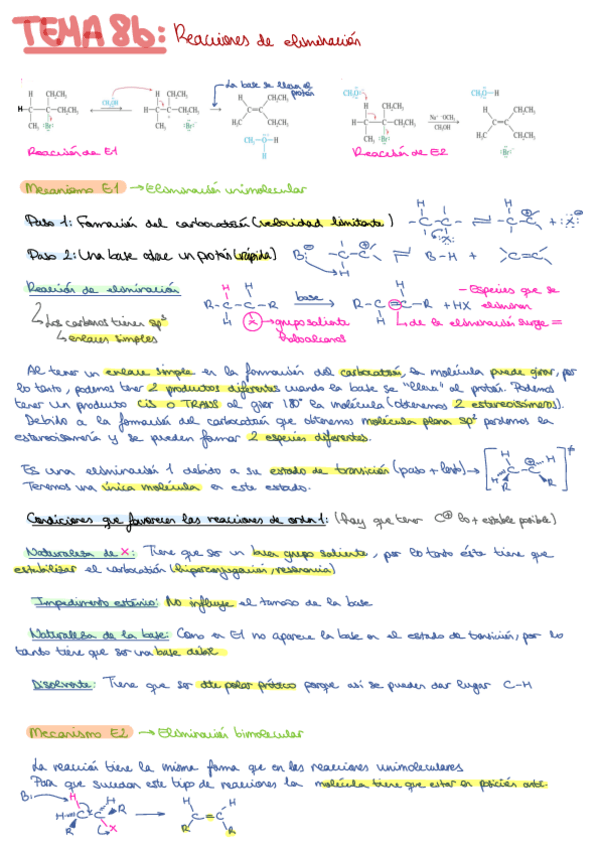 TEMA 8b: Reacciones de eliminación
La base se lleva el protón
H CH₂CH₃
H CH₂CH₃
H CH₂CH₃
CH₃OH
CH₂CH₃
CH₃ :Br:
Reacción de E1
Na⁺ ⁻OCH₃
CH₃OH
Reacción de E2
Mecanismo E1 → Eliminación unimolecular
Paso 1: Formación del carbocatión (velocidad limitante)
Paso 2: Una base atrae un protón (rápida)
B: B-H +
Reacción de eliminación
↳ Los carbonos tienen sp³
↳ enlaces simples
R-C-C-R base R-C=C-R + HX
X → grupo saliente
haloalcanos
- Especies que se eliminan
↳ de la eliminación surge =
Al tener un enlace simple en la formación del carbocatión, la molécula puede girar, por
lo tanto, podemos tener 2 productos diferentes cuando la base se "lleva" al protón. Podemos
tener un producto CIS o TRANS al girar 180° la molécula (obtenemos 2 estereoisómeros).
Debido a la formación del carbocatión que obtenemos molécula plana sp² perdemos la
estereoisomería y se pueden formar 2 especies diferentes.
Es una eliminación 1 debido a su estado de transición (paso + lento) →
Tenemos una única molécula en este estado.
Condiciones que favorecen las reacciones de orden 1: (hay que tener C⊕ lo + estable posible)
Naturaleza de X: Tiene que ser un buen grupo saliente, por lo tanto éste tiene que
estabilizar el carbocatión (hiperconjugación, resonancia)
Impedimento estérico: No influye el tamaño de la base
Naturaleza de la base: Como en E1 no aparece la base en el estado de transición, por lo
tanto tiene que ser una base débil
Disolvente: Tiene que ser dte polar prótico porque así se pueden dar lugar C-H
Mecanismo E2 → Eliminación bimolecular
La reacción tiene la misma forma que en las reacciones unimoleculares
Para que sucedan este tipo de reacciones la molécula tiene que estar en posición anti.
B: H